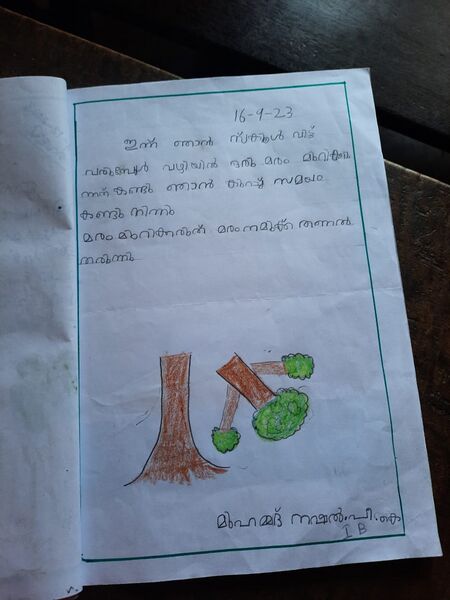 16-9-23
ഇന്ന് ഞാൻ സ്ക്കൂൾ വിട്ട്
വരുമ്പോൾ വഴിയിൽ ഒരു മരം മുറിക്കു
ന്നത് കണ്ടു ഞാൻ കുറച്ച് സമയം
കണ്ടു നിന്നു
മരം മുറിക്കരുത് മരം നമുക്ക് തണൽ
തരുന്നു
മുഹമ്മദ് നഷൽ.പി.കെ
I B